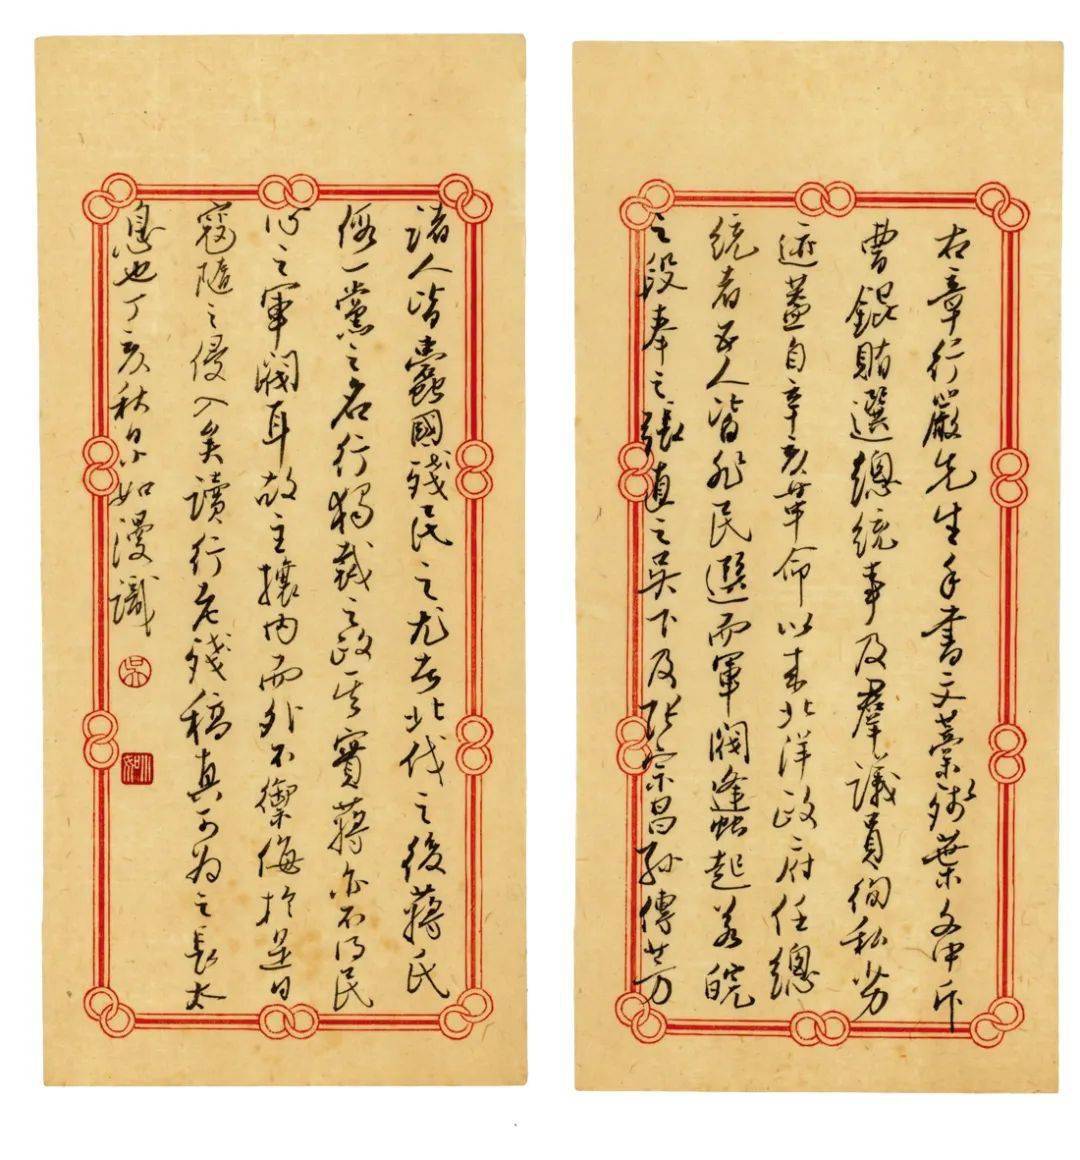 右章行嚴先生手書文藁殘葉文中斥
曹錕賄選總統事及羣議員徇私劣
迹蓋自辛亥革命以来北洋政府任總
統者五人皆非民選而軍閥蠭起若皖
之段奉之張直之吳下及張宗昌孫傳芳
諸人皆蠹國殘民之尤者北伐之後蔣氏
假一黨之名行獨裁之政其實蔣亦不得民
心之軍閥耳故主攘内而外不禦侮於是日
寇隨之侵入矣讀行老殘稿真可為之長太
息也丁亥秋日小如漫識
吴
小如